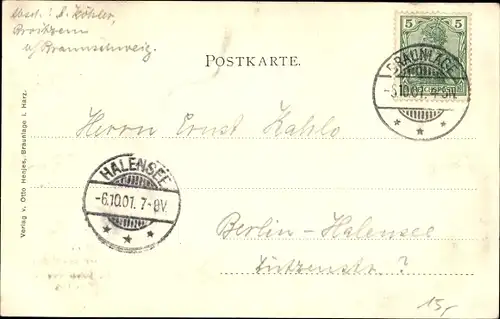 Absd.: E. Köhler,
Broitzem
b/Braunschweig.
POSTKARTE.
5 5
BRAUNLAGE
Herrn Ernst Kahlo
HALENSEE
-6.10.01. 7-8V.
Berlin-Halensee
Lützenstr. ?
Verlag v. Otto Henjes, Braunlage i. Harz.
15,-